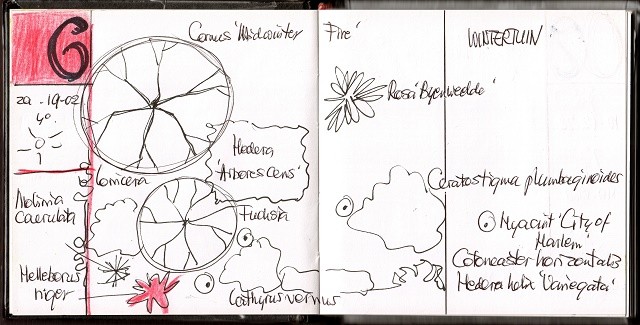 6
za . 19-02
4°
Cornus 'Midwinter Fire'
WINTERTUIN
Rosa 'Byenweelde'
Hedera
'Arborescens'
lonicera
Molinia
caerulea
Fuchsia
Ceratostigma plumbaginoides
Hyacint 'City of
Harlem
Cotoneaster horizontalis
Hedera helix 'Variegata'
Helleborus
niger
Lathyrus vernus